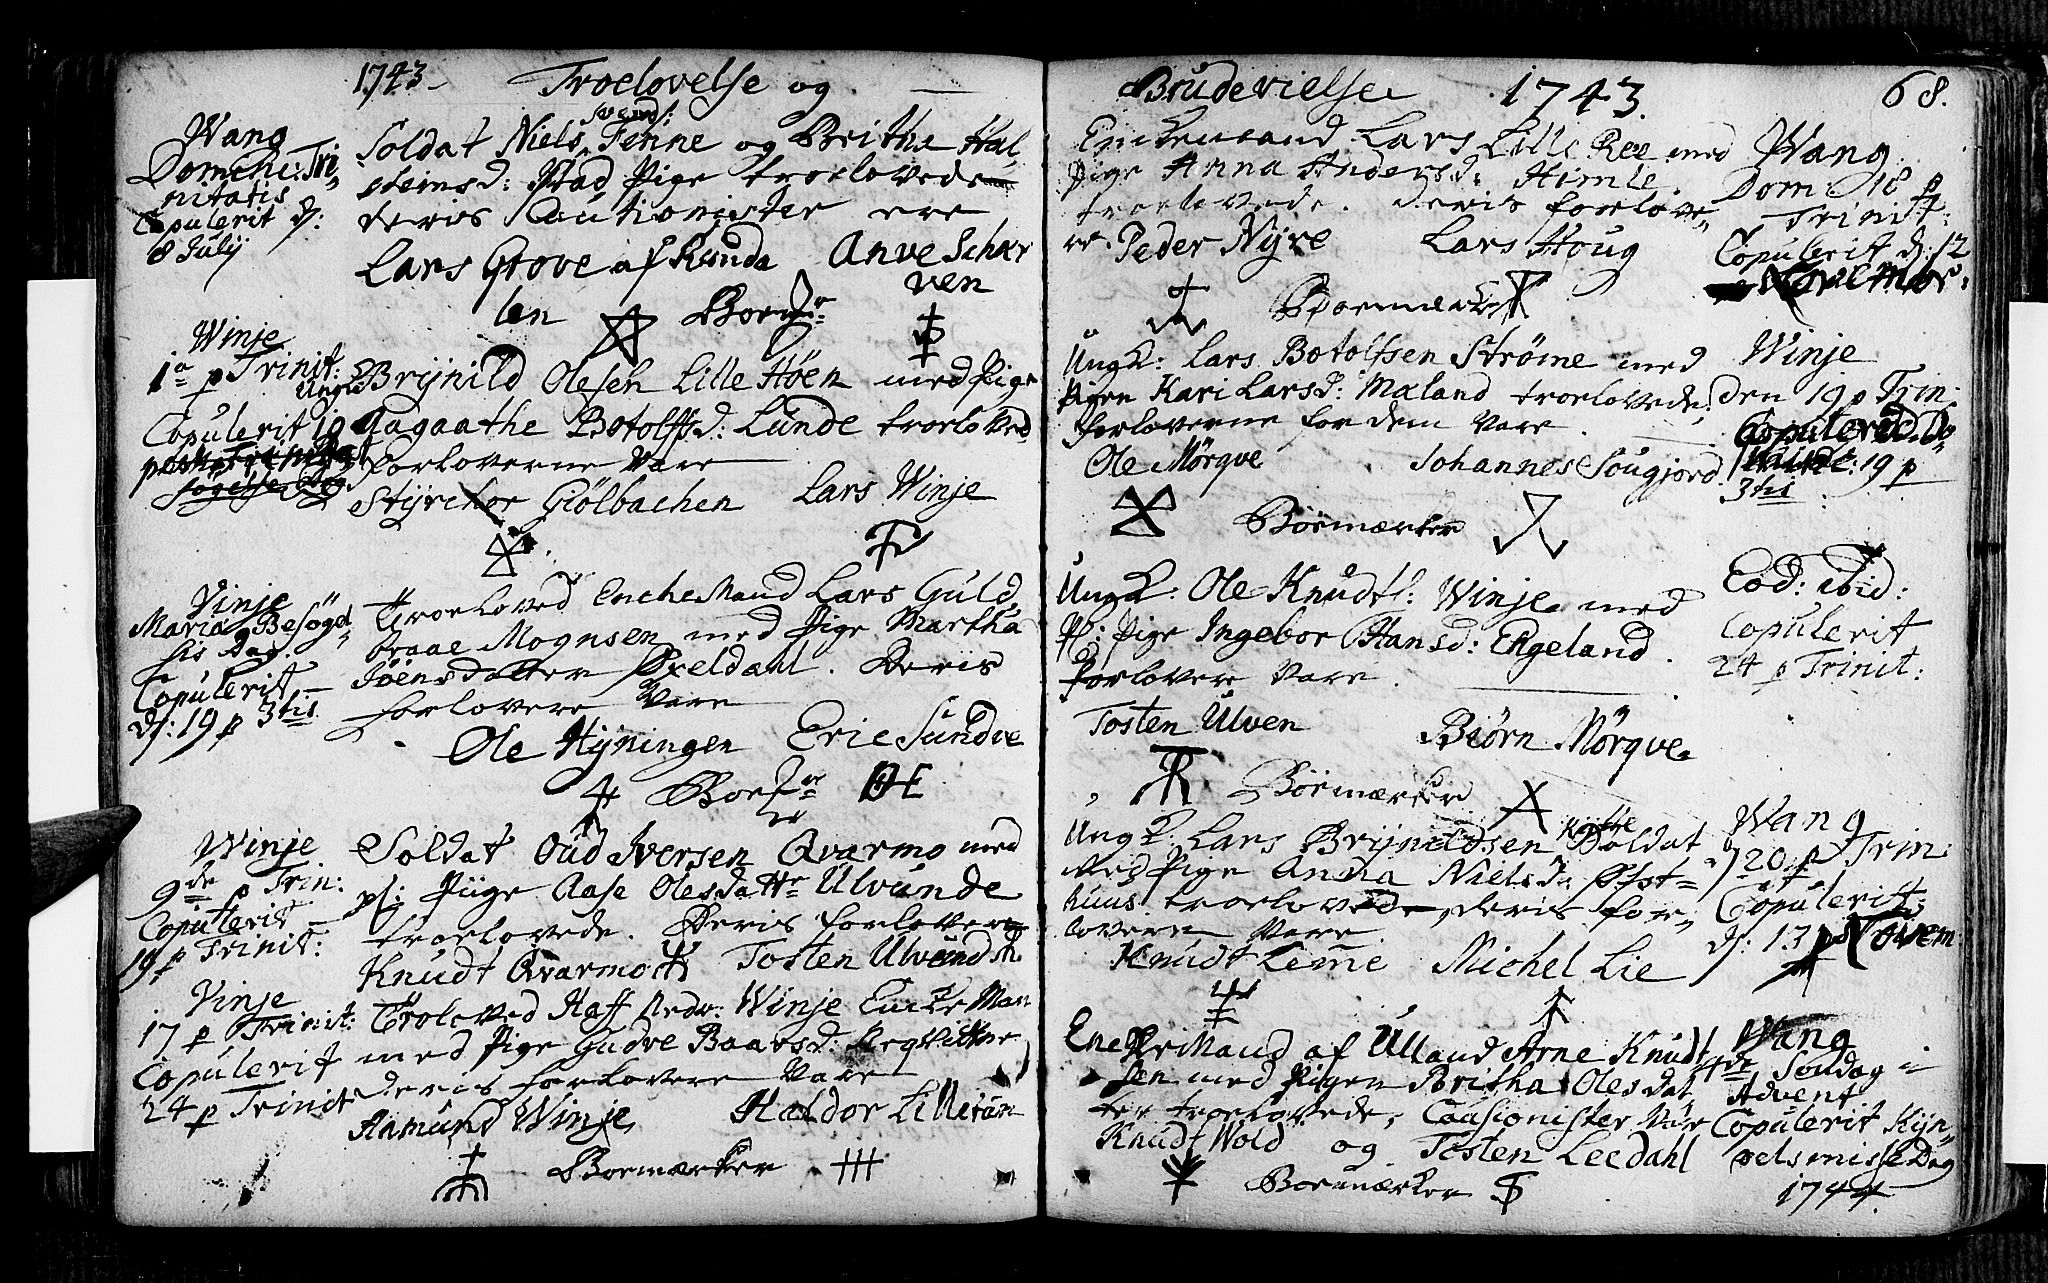 1743 Troelovelse og
Wang
Domin: Tri-
nitatis
Copulerit d:
8 Julij
Soldat Niels Svends: Tenne og Brithe Hal-
steinsd: Stad Pige troelovede
deris Cautionister ere
Lars Grove af Runda Anve Schær
len ven
Winje
1a p Trinit:
Copulerit 19
Ungk Brijnild Olesen Lille Höen med Pige
Aagaathe Botolffsd: Lunde troeloved
Forloverne vare
Styrchor Giölbachen Lars Winje
Vinje
Mariæ Besögel-
sis Dag.
Copulerit
d: 19 p 3tis
Troeloved EncheMand Lars Guld
braae Mognsen med Pige Martha
Jöensdatter Öxeldahl. Deris
forlovere vare
Ole Hyningen Eric Sundve
Winje
9de p Trin:
Copulerit
19 p Trinit:
Soldat Oud Iversen Qvarmo med
pf: Piige Aase Olesdatter Ulvunde
troelovede. Deris forlovere
Knudt Qvarmo Tosten Ulvund
Vinje
17 p Trinit:
Copulerit
24 p Trinit
Troloved Haff Nedr: Winje EnckeMan
med Pige Gudve Baarsd:
deris forlovere vare
Aamund Winje Haldor Lilletun
Boemærker
Brudevielse 1743. 68.
Enckemand Lars Lille Ree med
Pige Anna Andersd: Himle.
troelovede. deris forlove-
re. Peder Nyre Lars Houg
Boemærker
Wang
Dom: 18 p
Trinit:
Copulerit d: 12
Novembr:
Ungk: Lars Botolfsen Ströme med
Pigen Kari Larsd: Mæland troelovede,
forloverne for dem vare.
Ole Mörqve Johannes Sougjord
Boemærker
Winje
den 19 p Trin:
19 p
3tis
Ungk: Ole Knudts: Winje med
pf: Pige Ingebor Hansd: Engeland.
forlovere vare.
Tosten Ulven Biörn Mörqve
Boemærker
Eod: ibid:
Copulerit
24 p Trinit:
Ungk: Lars Brijnildsen Soldat
med Pige Anna Nielsd: Öfst-
huus troelovede, deris for-
lovere vare
Knudt Lemme Michel Lie
Wang
20 p Trin:
Copulerit
d: 13 Novem:
Enckemand af Ulland Arne Knudt
sen med Pigen Britha Olesdat
ter troelovede, Caasionister var
Knudt Wold og Tosten Leedahl
Boemærker
Wang
Söndag i
Advent
Copulerit Kyn-
delsmisse Dag
1744.